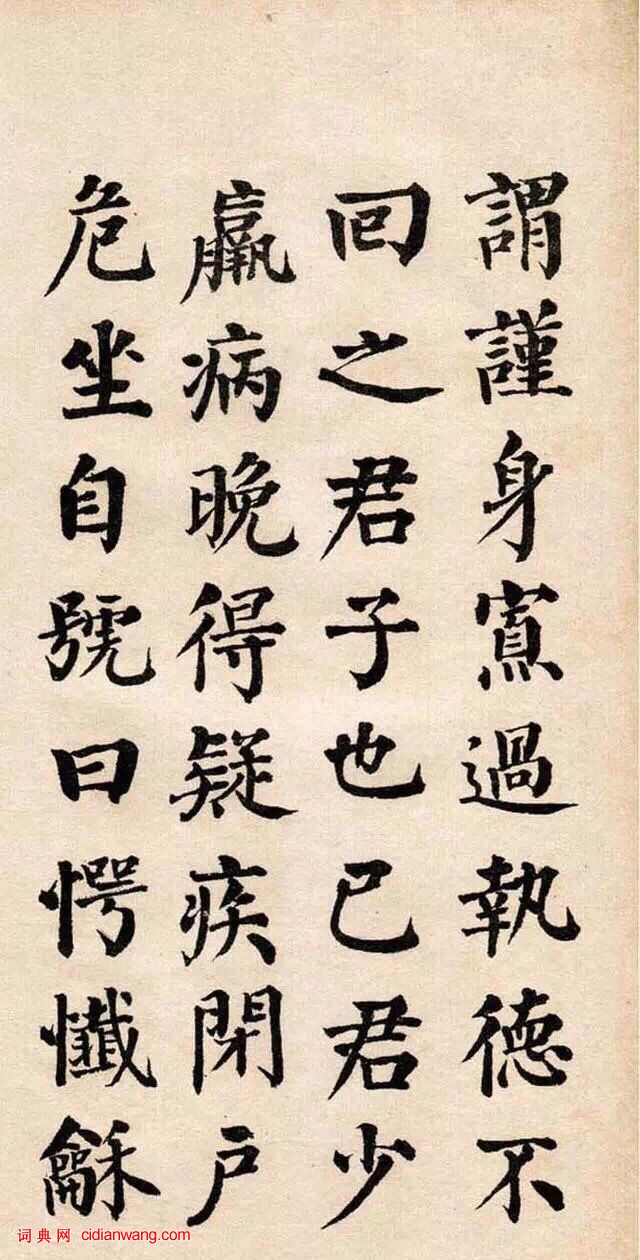 謂謹身寡過執德不
回之君子也已君少
羸病晚得疑疾閉戶
危坐自號曰愕懺龢
词典网 cidianwang.com